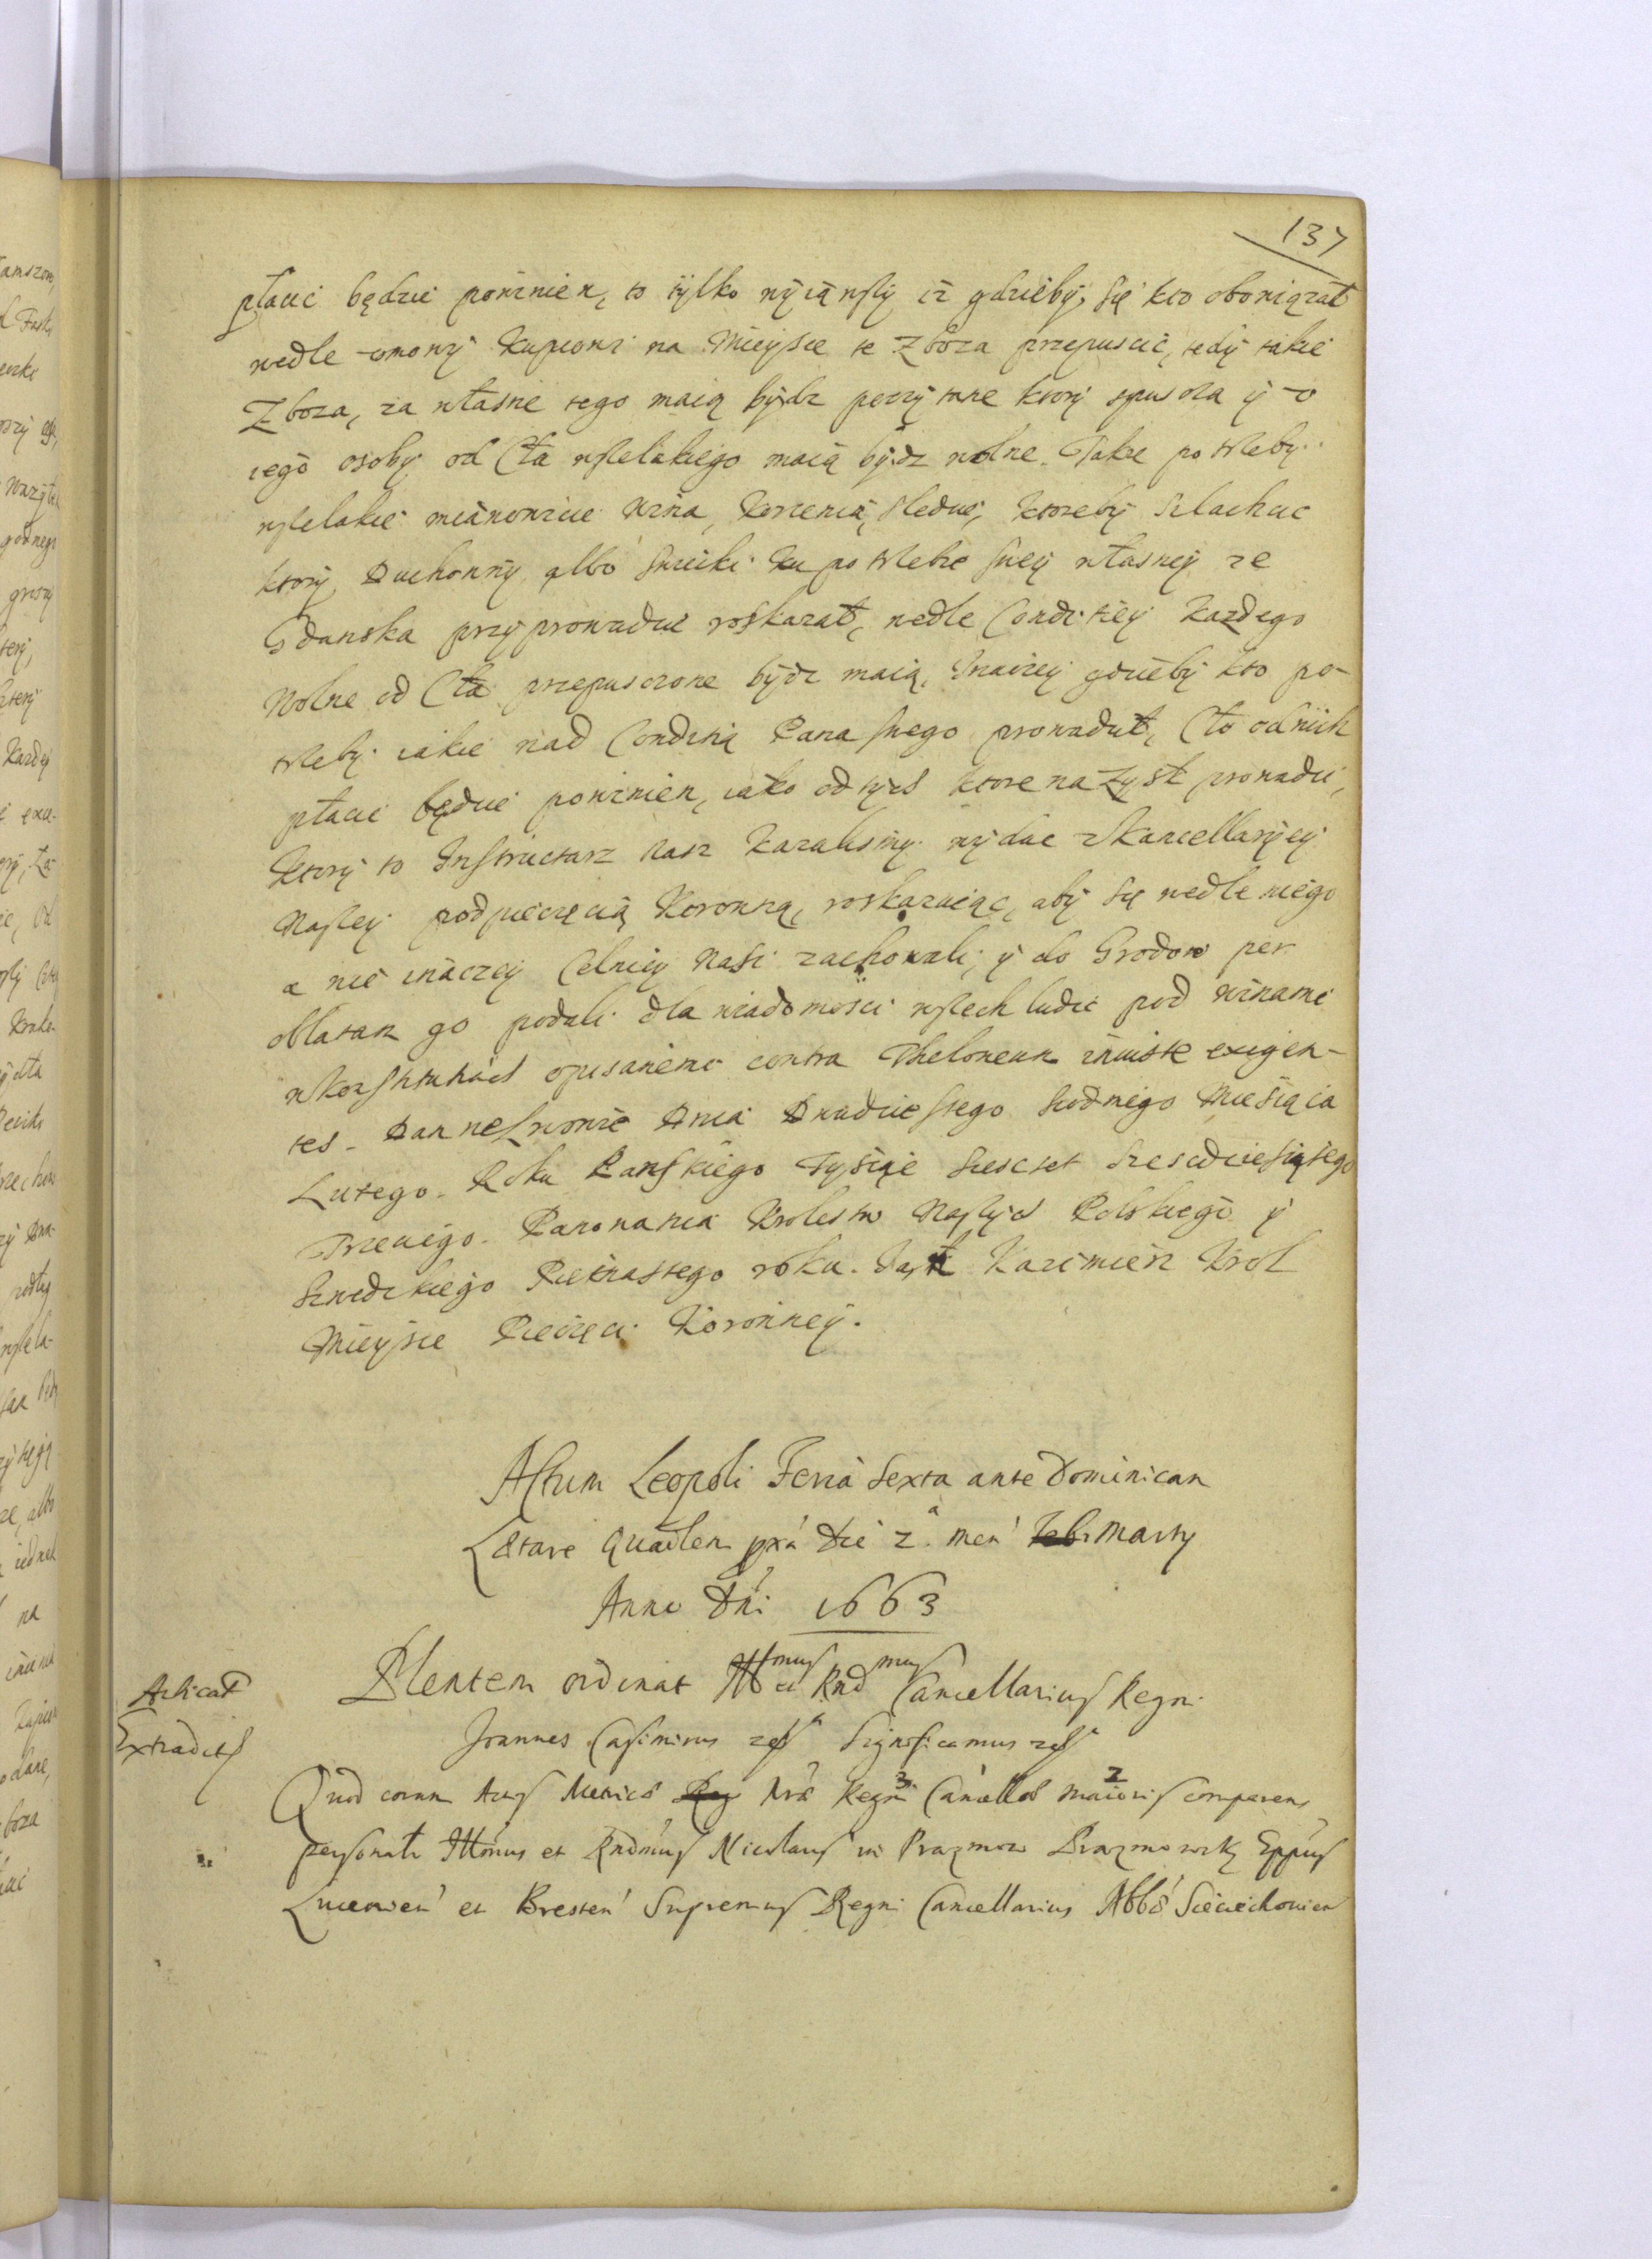 137
płacic będzie powinien, to tylko wyiąwszy iz gdzieby się kto obowiązał
wedle umowy Kupcowi na Mieysce te Zboza przepuscic, tedy takie
Zboza, za własne tego maią bydz poczytane ktory spuscza y o
iego osoby od Cła wszelakiego maią bydz wolne. Takze potrzeby
wszelakie mianowicie Wina, Korzenia, sledzie, ktoreby Szlachcic
ktory Duchowny albo swiecki ku potrzebie swey własney ze
Gdanska przyprowadzic roskazał, wedle Conditiey Kazdego
Wolne od Cła przepusczone bydz maią. Inaczey gdzieby kto po-
trzeby iakie nad Conditią Pana swego prowadził, Cło od nich
płacic będzie powinien, iako od tych ktore na Zysk prowadzi,
Ktory to Instructarz Nasz kazalismy wydac z Kancellaryey
Naszey pod pieczęcią Koronną, roskazuiąc, aby się wedle niego
a nie inaczey Celnicy Nasi zachowali, y do Grodow per
oblatam go podali dla wiadomosci wszech ludzi pod winami
w Konstitutiach opisanemi contra Theloneum iniuste exigen-
tes. Dan we Lwowie Dnia Dwudziestego siodmego Miesiąca
Lutego. Roku Panskiego Tysiąc szescset szescdziesiątego
Trzeciego. Panowania Krolestw Naszych Polskiego y
Szwedzkiego Piętnastego roku. Jan Kazimierz Krol
Mieysce Pieczęci Koronney.
Actum Leopoli Feria sexta ante Dominicam
Lætare Quadlem pxa Die 2a men Febr Marty
Anno Dni 1663
Pntem ordinat Illmus et Rndmus Cancellarius Regni
Joannes Casimirus etc Significamus etc
Arlicat
Extradits
Quod coram Actis Metrices Reg Nræ Regni 3 Cancellæ maioris 2 comparens
personalr Illmus et Rndmus Nicolaus in Prazmow Prazmowsky Eppus
Luceorien et Bresten Supremus Regni Cancellarius Abbs Sieciechovien